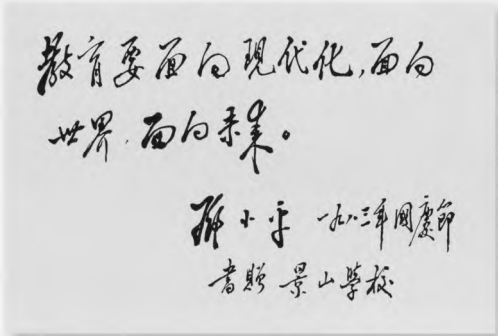 教育要面向現代化,面向
世界,面向未来。
邓小平 一九八三年國慶節
書贈景山學校